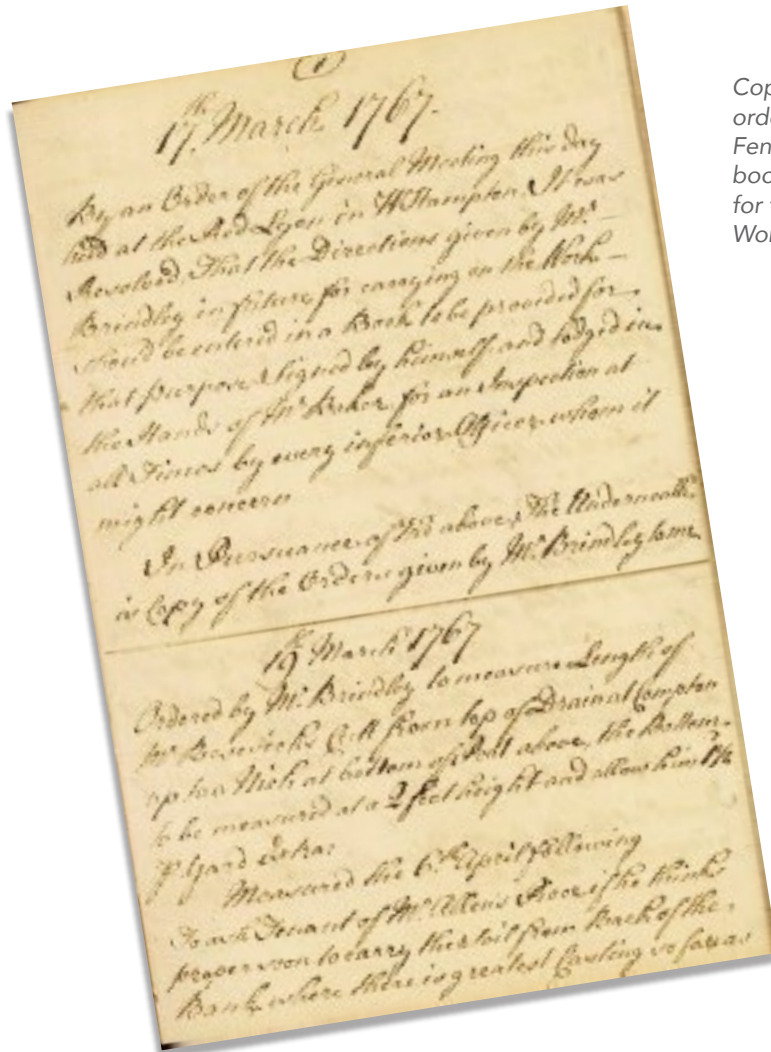 (1)
17.th March 1767.
By an Order of the General Meeting this day
held at the Red Lyon in W'Hampton It was
Resolved, That the Directions given by Mr.
Brindley in future for carrying on the Work
should be entered in a Book to be provided for
that purpose & signed by himself and lodged in
the Hands of Mr Baker for an Inspection at
all Times by every inferior Officer whom it
might concern
In Pursuance of the above, The Underneath
is Copy of the Orders given by Mr. Brindley to me
19th March 1767
Ordered by Mr. Brindley to measure Length of
Mr Cutt from top of Drain at Compton
up to a Nich at bottom of above, the Bottom
to be measured at a 2 feet height and allow him
P. Yard Extra
Measured the 6th April following
To ask Tenant of Mr Allens if he thinks
proper soon to carry the soil from Back of the
Bank where there is greatest Casting so far as
Cop
orde
Fen
boo
for
Wo